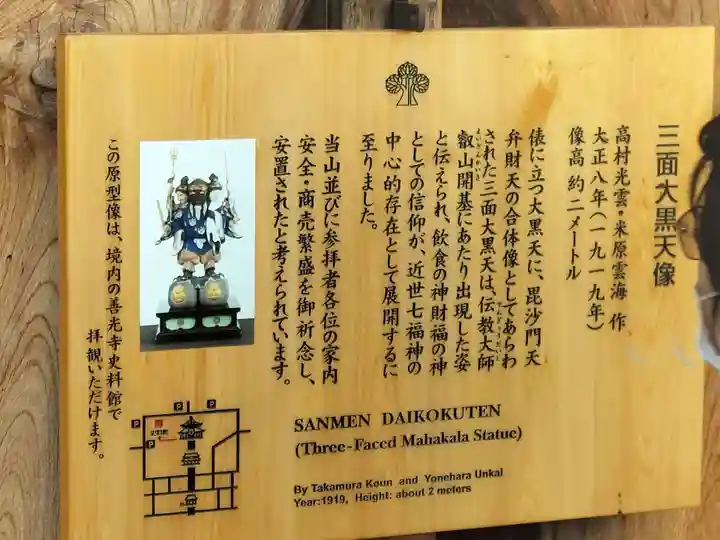 三面大黒天像
高村光雲・米原雲海 作
大正八年(一九一九年)
像高 約二メートル
俵に立つ大黒天に、毘沙門天
弁財天の合体像としてあらわ
された三面大黒天は、伝教大師
でんぎょうだいし
叡山開基にあたり出現した姿
えいざんかいき
と伝えられ、飲食の神財福の神
としての信仰が、近世七福神の
中心的存在として展開するに
至りました。
当山並びに参拝者各位の家内
安全・商売繁盛を御祈念し、
安置されたと考えられています。
この原型像は、境内の善光寺史料館で
拝観いただけます。
SANMEN DAIKOKUTEN
(Three-Faced Mahakala Statue)
By Takamura Koun and Yonehara Unkai
Year:1919, Height: about 2 meters
P
P
P
P
史料館